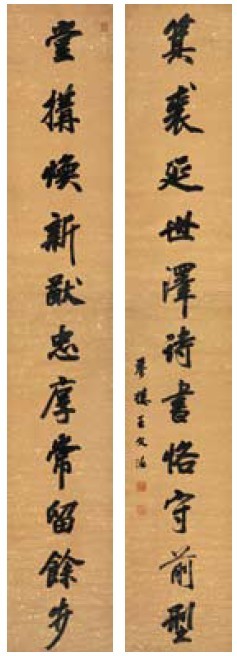 箕裘延世澤詩書恪守前型
堂搆煥新猷忠厚常留餘步
夢樓王文治